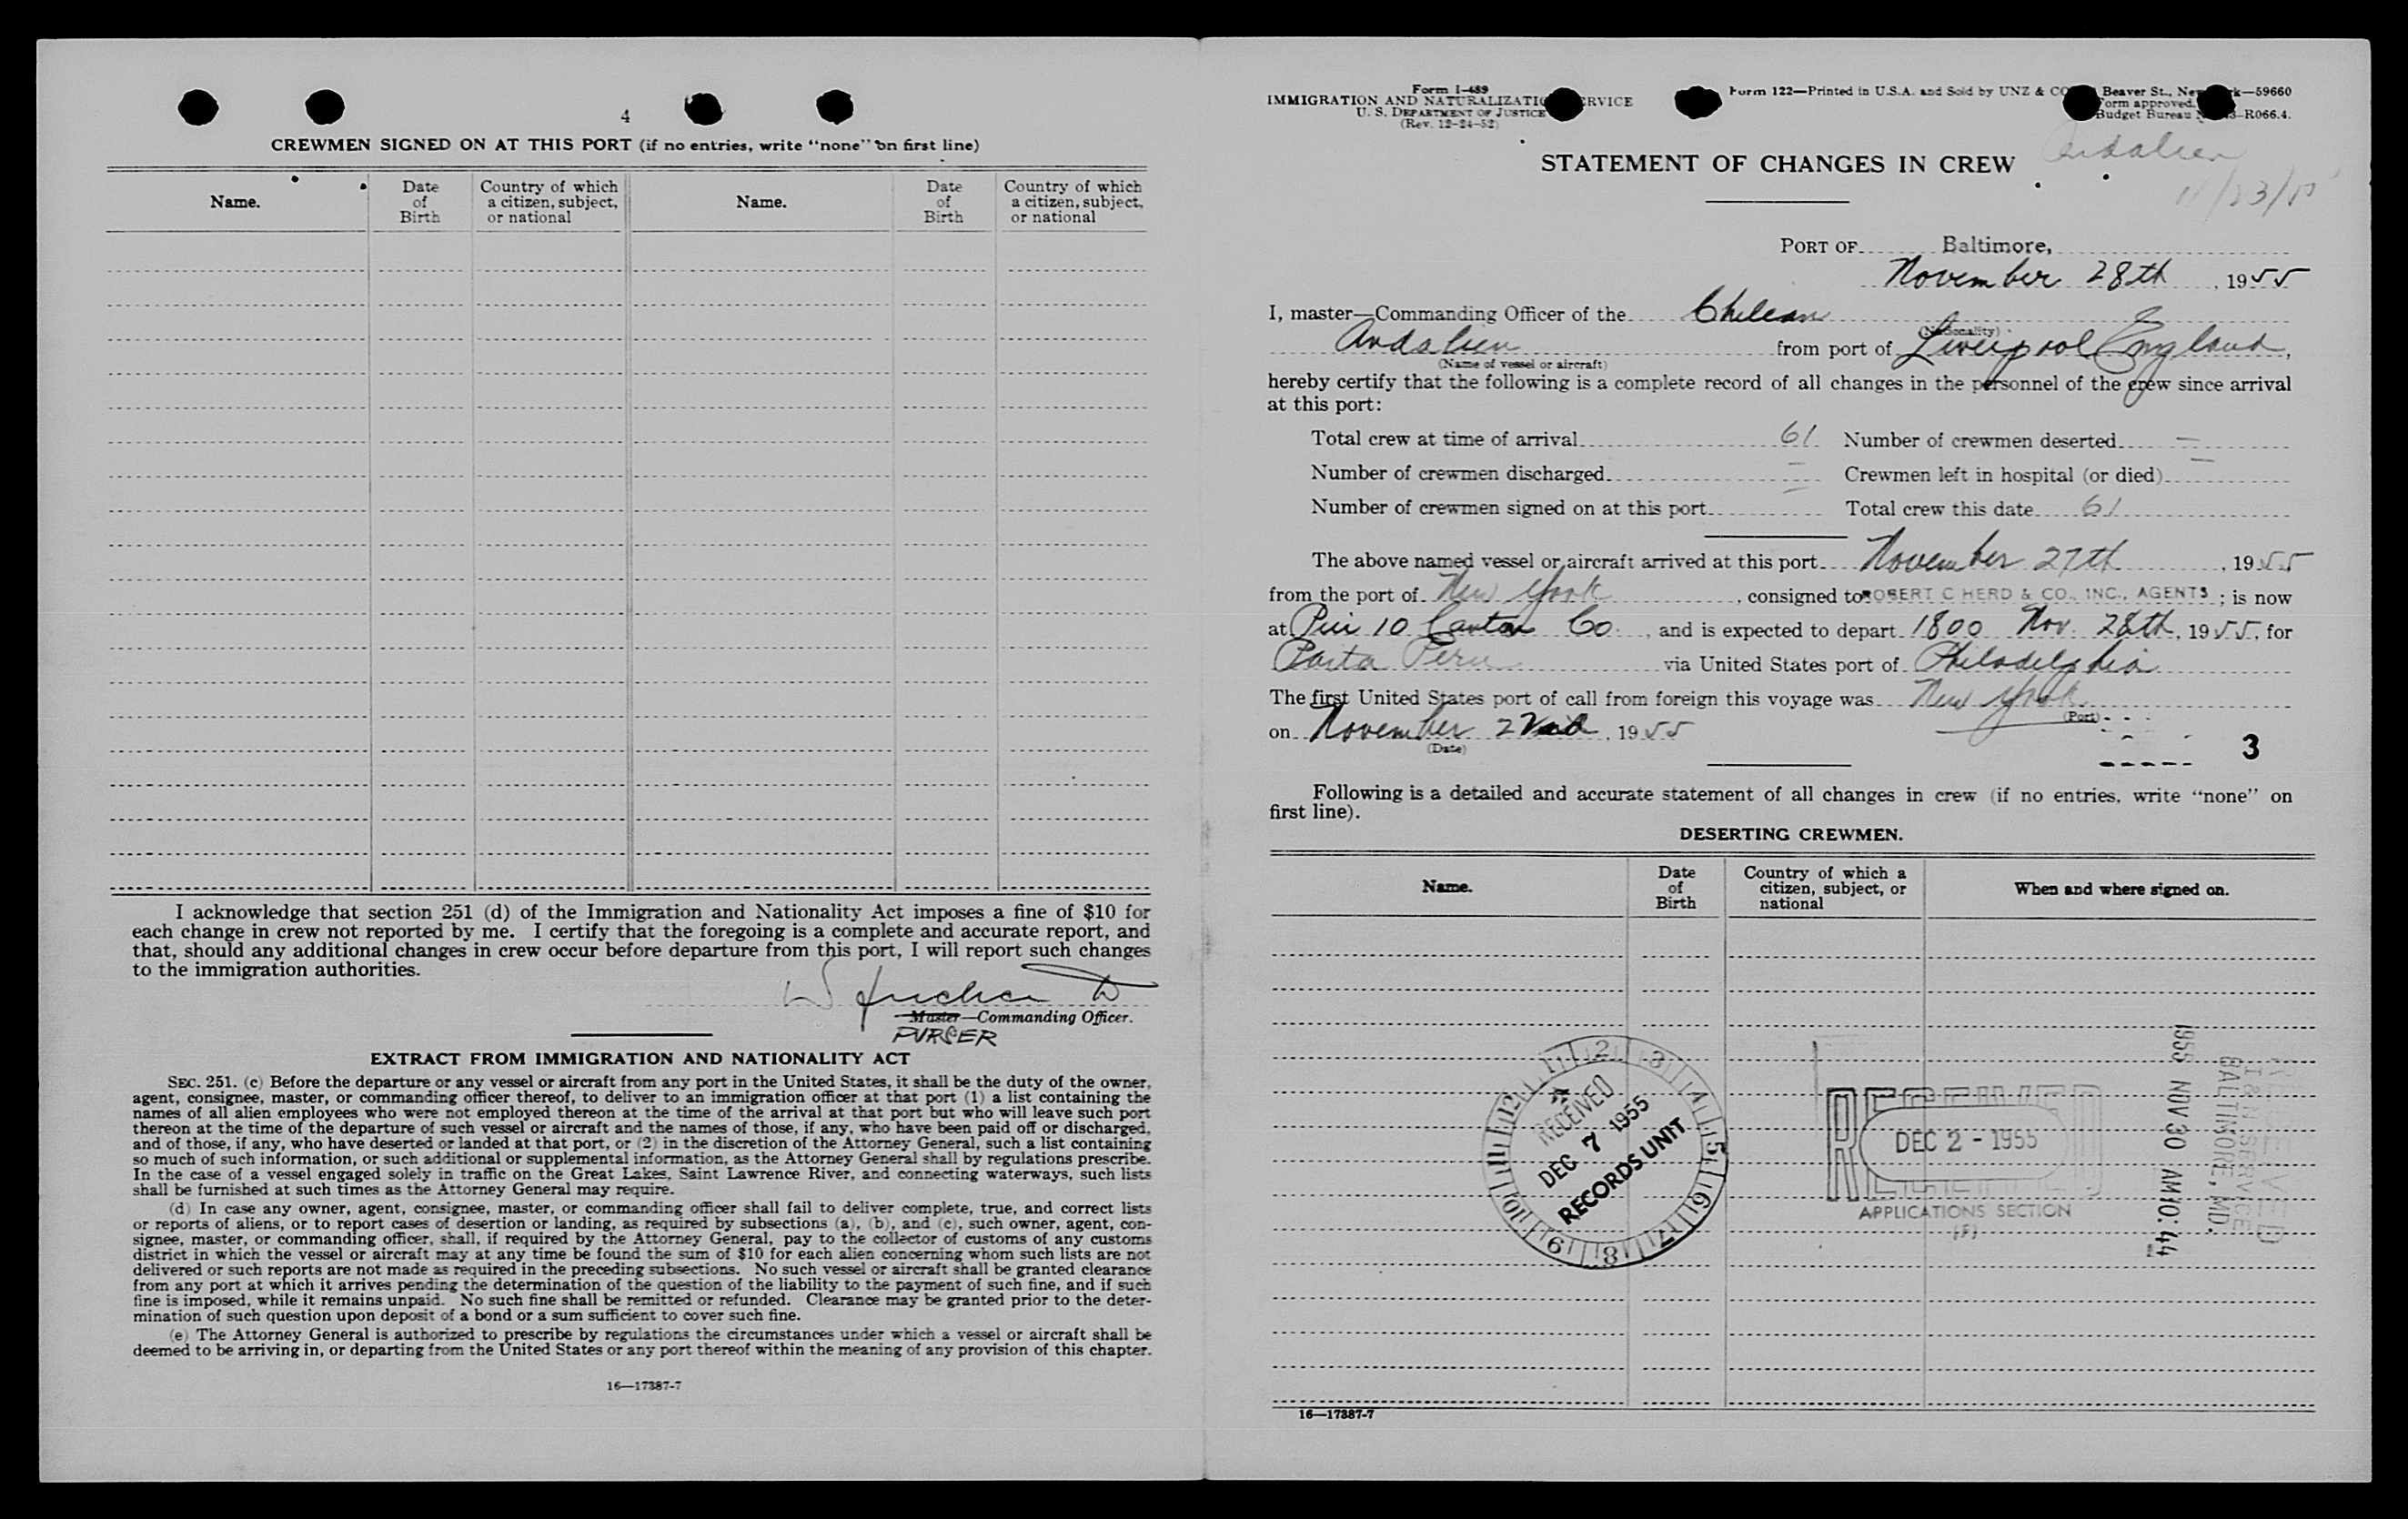 4
CREWMEN SIGNED ON AT THIS PORT (if no entries, write "none" on first line)
Name.
Date of Birth
Country of which a citizen, subject, or national
Name.
Date of Birth
Country of which a citizen, subject, or national
I acknowledge that section 251 (d) of the Immigration and Nationality Act imposes a fine of $10 for
each change in crew not reported by me. I certify that the foregoing is a complete and accurate report, and
that, should any additional changes in crew occur before departure from this port, I will report such changes
to the immigration authorities.
Master—Commanding Officer.
PURSER
EXTRACT FROM IMMIGRATION AND NATIONALITY ACT
SEC. 251. (c) Before the departure or any vessel or aircraft from any port in the United States, it shall be the duty of the owner,
agent, consignee, master, or commanding officer thereof, to deliver to an immigration officer at that port (1) a list containing the
names of all alien employees who were not employed thereon at the time of the arrival at that port but who will leave such port
thereon at the time of the departure of such vessel or aircraft and the names of those, if any, who have been paid off or discharged,
and of those, if any, who have deserted or landed at that port, or (2) in the discretion of the Attorney General, such a list containing
so much of such information, or such additional or supplemental information, as the Attorney General shall by regulations prescribe.
In the case of a vessel engaged solely in traffic on the Great Lakes, Saint Lawrence River, and connecting waterways, such lists
shall be furnished at such times as the Attorney General may require.
(d) In case any owner, agent, consignee, master, or commanding officer shall fail to deliver complete, true, and correct lists
or reports of aliens, or to report cases of desertion or landing, as required by subsections (a), (b), and (c), such owner, agent, con-
signee, master, or commanding officer, shall, if required by the Attorney General, pay to the collector of customs of any customs
district in which the vessel or aircraft may at any time be found the sum of $10 for each alien concerning whom such lists are not
delivered or such reports are not made as required in the preceding subsections. No such vessel or aircraft shall be granted clearance
from any port at which it arrives pending the determination of the question of the liability to the payment of such fine, and if such
fine is imposed, while it remains unpaid. No such fine shall be remitted or refunded. Clearance may be granted prior to the deter-
mination of such question upon deposit of a bond or a sum sufficient to cover such fine.
(e) The Attorney General is authorized to prescribe by regulations the circumstances under which a vessel or aircraft shall be
deemed to be arriving in, or departing from the United States or any port thereof within the meaning of any provision of this chapter.
16—17387-7
Form I-489
IMMIGRATION AND NATURALIZATION SERVICE
U. S. DEPARTMENT OF JUSTICE
(Rev. 12-24-52)
Form 122—Printed in U.S.A. and Sold by UNZ & CO Beaver St., New York—59660
Form approved.
Budget Bureau R066.4.
Andalien
11/23/55
STATEMENT OF CHANGES IN CREW
PORT OF Baltimore,
November 28th, 1955
I, master—Commanding Officer of the Chilean
(Nationality)
Andalien from port of Liverpool England,
(Name of vessel or aircraft)
hereby certify that the following is a complete record of all changes in the personnel of the crew since arrival
at this port:
Total crew at time of arrival 61 Number of crewmen deserted —
Number of crewmen discharged — Crewmen left in hospital (or died) —
Number of crewmen signed on at this port — Total crew this date 61
The above named vessel or aircraft arrived at this port November 27th, 1955
from the port of New York, consigned to ROBERT C HERD & CO., INC., AGENTS; is now
at Pier 10 Canton Co, and is expected to depart 1800 Nov. 28th, 1955, for
Paita Peru via United States port of Philadelphia
The first United States port of call from foreign this voyage was New York
(Port)
on November 22nd, 1955
(Date)
3
Following is a detailed and accurate statement of all changes in crew (if no entries, write "none" on
first line).
DESERTING CREWMEN.
Name.
Date of Birth
Country of which a citizen, subject, or national
When and where signed on.
12 1 2 3 4 5 6 7 8 9 10 11
RECEIVED
DEC 7 1955
RECORDS UNIT
RECEIVED
DEC 2 - 1955
APPLICATIONS SECTION
(F)
RECEIVED
I & N SERVICE
BALTIMORE, MD.
1955 NOV 30 AM 10:44
16—17387-7